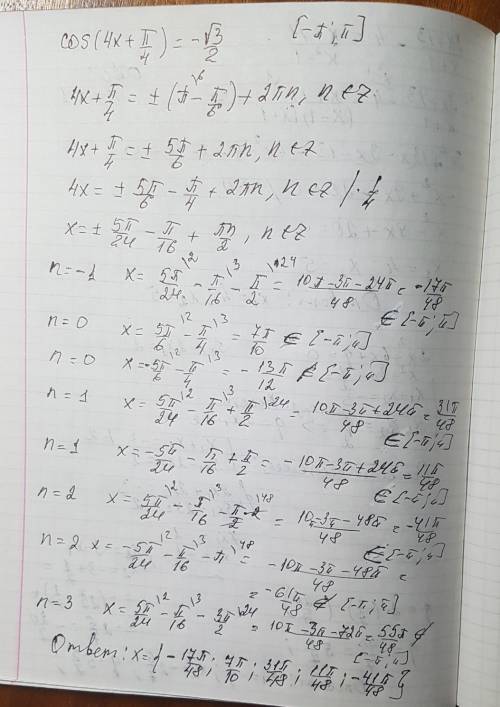 cos(4x + π/4) = -√3/2 [-π; π]
4x + π/4 = ± (π\6 - π/6) + 2πn, n ∈ Z
4x + π/4 = ± 5π/6 + 2πn, n ∈ Z
4x = ± 5π/6 - π/4 + 2πn, n ∈ Z /· 1/4
x = ± 5π/24 - π/16 + πn/2, n ∈ Z
n = -1 x = 5π/24\2 - π/16\3 - π/2\24 = 10π - 3π - 24π/48 = -17π/48
∈ [-π; π]
n = 0 x = 5π/6\2 - π/4\3 = 7π/10 ∈ [-π; π]
n = 0 x = -5π/6\2 - π/4\3 = -13π/12 ∉ [-π; π]
n = 1 x = 5π/24\2 - π/16\3 + π/2\24 = 10π - 3π + 24π/48 = 31π/48
∈ [-π; π]
n = 1 x = -5π/24 - π/16 + π/2 = -10π - 3π + 24π/48 = 11π/48
∈ [-π; π]
n = 2 x = 5π/24\2 - π/16\3 - π/2·2\48 = 10π - 3π - 48π/48 = -41π/48
∈ [-π; π]
n = 2 x = -5π/24\2 - π/16\3 - π\48 = -10π - 3π - 48π/48 =
= -61π/48 ∉ [-π; π]
n = 3 x = 5π/24\2 - π/16\3 - 3π/2\24 = 10π - 3π - 72π/48 = 55π/48 ∉
[-π; π]
Ответ: x = { -17π/48; 7π/10; 31π/48; 11π/48; -41π/48 }